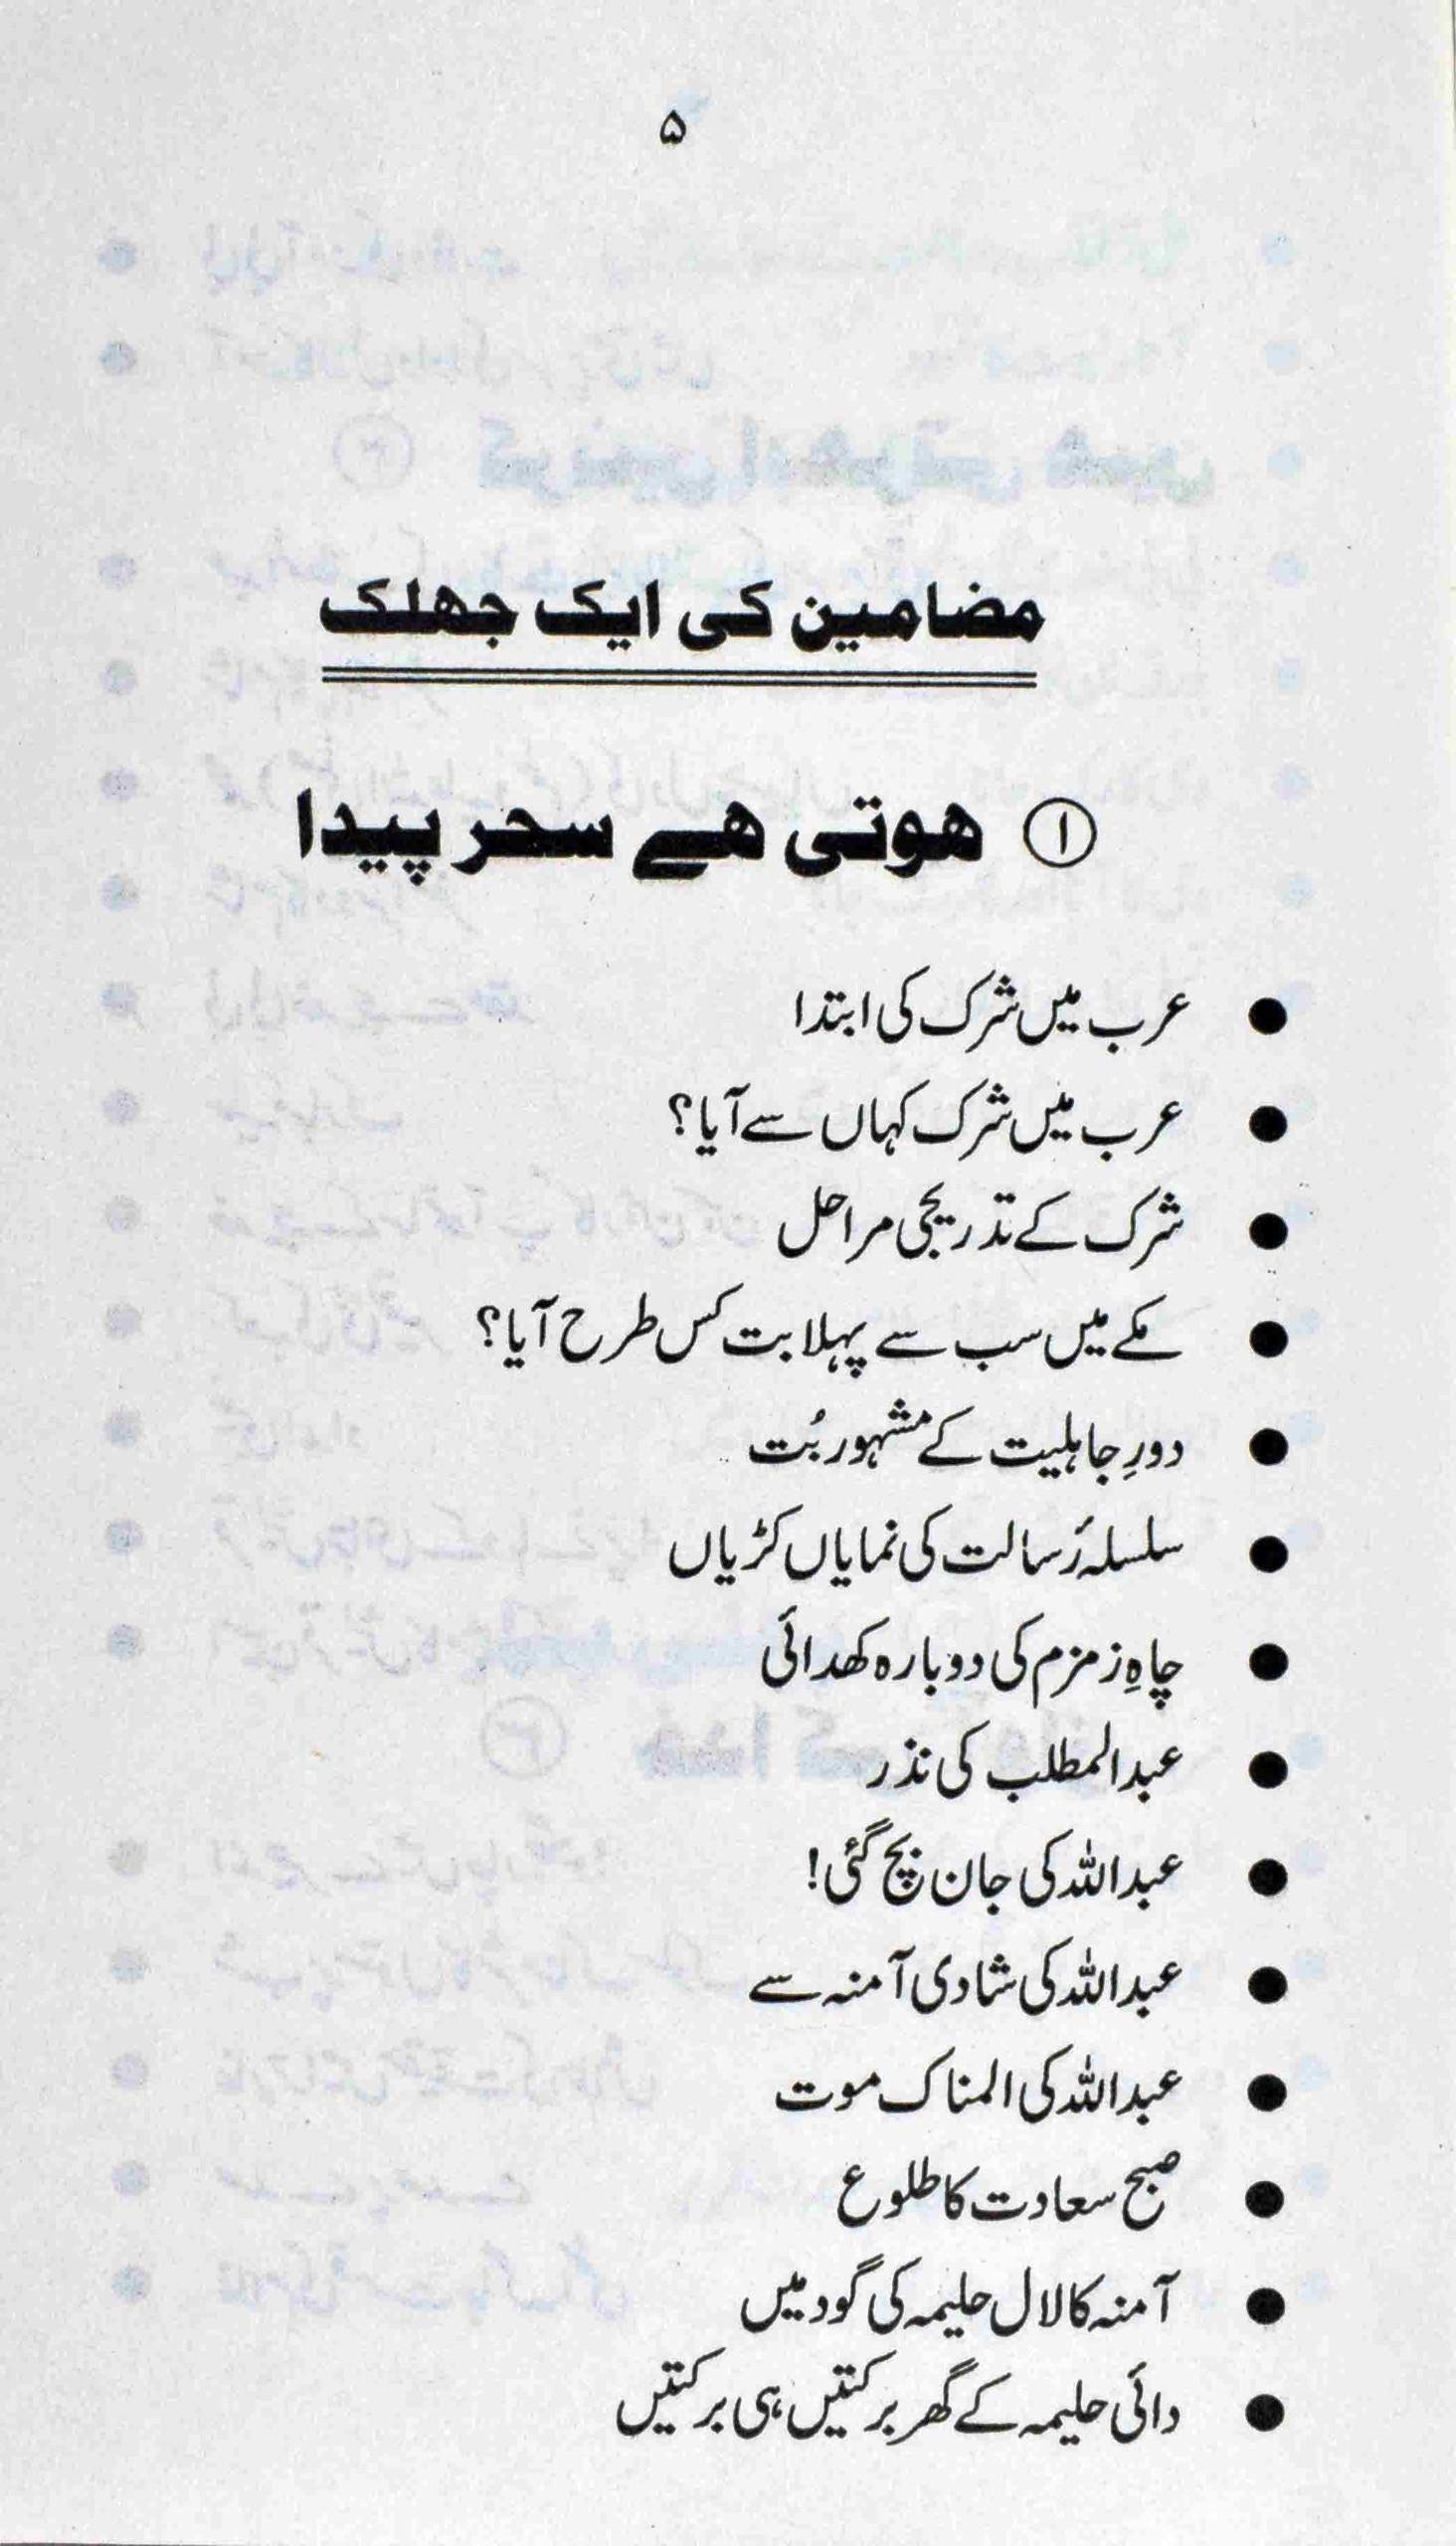 ۵
مضامین کی ایک جھلک
① ہوتی ہے سحر پیدا
● عرب میں شرک کی ابتدا
● عرب میں شرک کہاں سے آیا؟
● شرک کے تدریجی مراحل
● مکے میں سب سے پہلا بت کس طرح آیا؟
● دورِ جاہلیت کے مشہور بُت
● سلسلۂ رسالت کی نمایاں کڑیاں
● چاہِ زمزم کی دوبارہ کھدائی
● عبدالمطلب کی نذر
● عبداللہ کی جان بچ گئی!
● عبداللہ کی شادی آمنہ سے
● عبداللہ کی المناک موت
● صبح سعادت کا طلوع
● آمنہ کا لال حلیمہ کی گود میں
● دائی حلیمہ کے گھر برکتیں ہی برکتیں